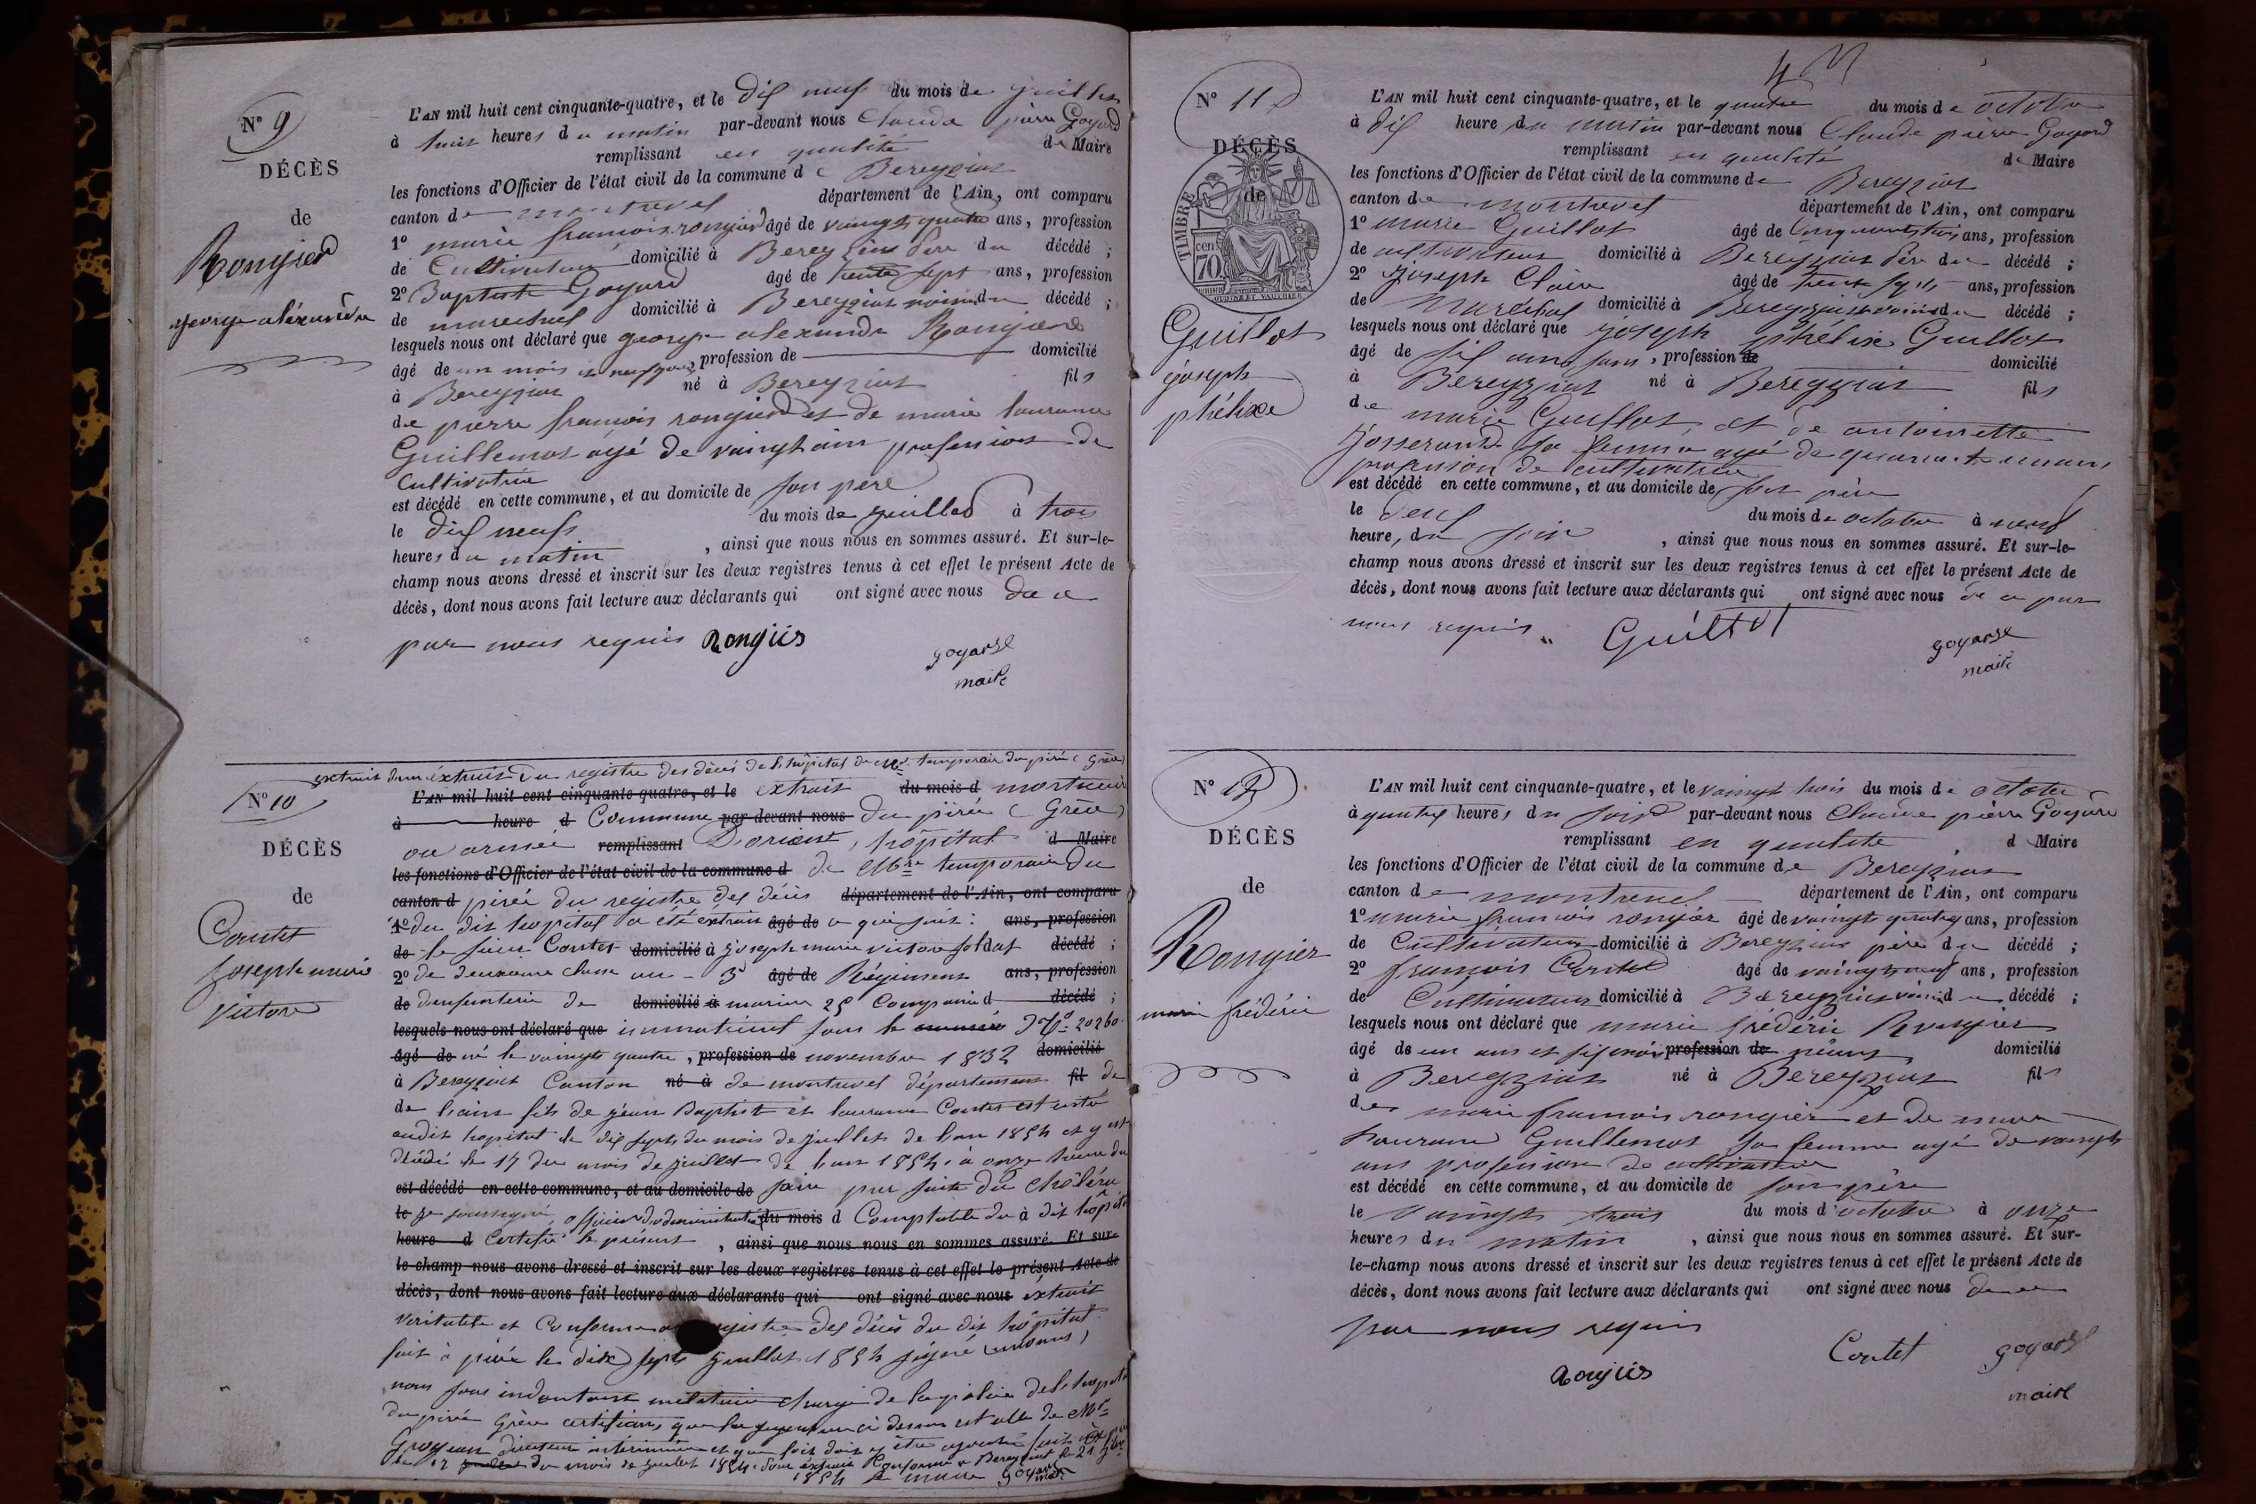 Nº 9
DÉCÈS
de
Rongier
george alexandre
L'AN mil huit cent cinquante-quatre, et le dix neuf du mois de juillet
à huit heures du matin par-devant nous Claude pierre Goyard
remplissant en qualité de Maire
les fonctions d'Officier de l'état civil de la commune de Bereyziat
canton de montrevel département de l'Ain, ont comparu
1º marie françois rongier âgé de vaingt quatre ans, profession
de Cultivateur domicilié à Bereyziat Père du décédé ;
2º Baptiste Goyard âgé de trente sept ans, profession
de marechal domicilié à Bereyziat voisin du décédé ;
lesquels nous ont déclaré que george alexandre Rongier
âgé de un mois et neuf jours, profession de domicilié
à Bereyziat né à Bereyziat fils
de pierre francois rongier et de marie laurance
Guillemot agé de vaingt ans profession de
Cultivatrice
est décédé en cette commune, et au domicile de son père
le dix neuf du mois de juillet à trois
heures du matin, ainsi que nous nous en sommes assuré. Et sur-le-
champ nous avons dressé et inscrit sur les deux registres tenus à cet effet le présent Acte de
décès, dont nous avons fait lecture aux déclarants qui ont signé avec nous de ce
par nous requis Rongier
goyard
maire
Nº 10
DÉCÈS
de
Contet
Joseph marie
Victor
extrait d'un extrait du registre des décés de l'hôpital de temporaire du pirée (Grèce)
L'AN mil huit cent cinquante-quatre, et le extrait du mois d mortuaire
à heure d Commune par-devant nous du pirée (Grèce)
ou armée remplissant D'orient, hôpital d Maire
les fonctions d'Officier de l'état civil de la commune d de temporaire du
canton d pirée du registre des décès département de l'Ain, ont comparu
1º du dit hopital a été extrait âgé de ce qui suit : ans, profession
de le sieur Contet domicilié à Joseph marie victor soldat décédé ;
2º de deuxieme classe au 3e âgé de Régiment ans, profession
de d'infanterie de domicilié à marine 25 Compagnie d décédé ;
lesquels nous ont déclaré que immatriculé sous le numéro Nº 20260
âgé de né le vaingt quatre, profession de novembre 1832 domicilié
à Bereyziat Canton né à de montrevel département fil de
de l'ain fils de jean Baptist et laurance Contet est entré
audit hopital le dix sept du mois de juillet de l'an 1854 et y est
décédé le 17 du mois de juillet de l'an 1854 à onze heure du
est décédé en cette commune, et au domicile de soir par suite du choléra
le je soussigné, officier d'administration du mois d Comptable du dit hopital
heure d Certifie le présent, ainsi que nous nous en sommes assuré. Et sur-
le-champ nous avons dressé et inscrit sur les deux registres tenus à cet effet le présent Acte de
décès, dont nous avons fait lecture aux déclarants qui ont signé avec nous extrait
véritable et Conforme au registre des décès du dit hôpital
fait à pirée le dix sept juillet 1854 signé
nous sous intendant militaire chargé de la police de l'hopital
du pirée Grèce certifions que la signature ci dessus est celle de Mr
et que foit doit y être ajoutée fait
le 17 du mois de juillet 1854 Pour extrait Conforme a Bereyziat le 21
1854 Le maire Goyard
maire
4
Nº 11
DÉCÈS
de
TIMBRE
cen
70
Guillot
joseph
phélixe
L'AN mil huit cent cinquante-quatre, et le quatre du mois de octobre
à dix heure du matin par-devant nous Claude pierre Goyard
remplissant en qualité de Maire
les fonctions d'Officier de l'état civil de la commune de Bereyziat
canton de montrevel département de l'Ain, ont comparu
1º marie Guillot âgé de Cinquante trois ans, profession
de cultivateur domicilié à Bereyziat Père du décédé ;
2º Joseph Claire âgé de trente sept ans, profession
de Maréchal domicilié à Bereyziat voisin du décédé ;
lesquels nous ont déclaré que joseph phélixe Guillot
âgé de six ans, profession de domicilié
à Bereyziat né à Bereyziat fils
de marie Guillot, et de antoinette
josserand sa femme agé de quarante un ans
profession de cultivatrice
est décédé en cette commune, et au domicile de son père
le deux du mois de octobre à neuf
heure, du soir, ainsi que nous nous en sommes assuré. Et sur-le-
champ nous avons dressé et inscrit sur les deux registres tenus à cet effet le présent Acte de
décès, dont nous avons fait lecture aux déclarants qui ont signé avec nous de ce par
nous requis Guillot
goyard
maire
Nº 12
DÉCÈS
de
Rongier
marie frédéric
L'AN mil huit cent cinquante-quatre, et le vaingt trois du mois de octobre
à quatre heures du soir par-devant nous Claude pierre Goyard
remplissant en qualité d Maire
les fonctions d'Officier de l'état civil de la commune de Bereyziat
canton de montrevel département de l'Ain, ont comparu
1º marie francois rongier âgé de vaingt quatre ans, profession
de Cultivateur domicilié à Bereyziat père du décédé ;
2º françois Contet âgé de vaingt neuf ans, profession
de Cultivateur domicilié à Bereyziat voisin du décédé ;
lesquels nous ont déclaré que marie frédéric Rongier
âgé de un ans et six mois profession de néant domicilié
à Bereyziat né à Bereyziat fils
de marie francois rongier et de marie
laurance Guillemot sa femme agé de vaingt
ans profession de cultivatrice
est décédé en cette commune, et au domicile de son père
le vaingt trois du mois d'octobre à onze
heures du matin, ainsi que nous nous en sommes assuré. Et sur-
le-champ nous avons dressé et inscrit sur les deux registres tenus à cet effet le présent Acte de
décès, dont nous avons fait lecture aux déclarants qui ont signé avec nous de ce
par nous requis
Rongier
Contet
goyard
maire